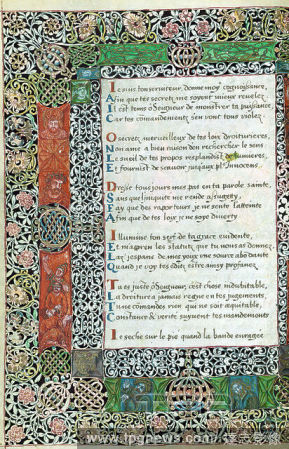 Iesus ton serviteur, donne moy cognoissance,
Afin que tes secretz me soyent mieux revelez
Il est tems ô Seigneur de monstrer ta puissance,
Car tes commandemens sen vont tous violez.
O secretz merveilleux de tes loix droiturieres,
Mon ame a bien raison den rechercher le sens
Le sueil de tes propos resplendist de lumieres,
Et fournist de scavoir jusqu'aux plus Innocens.
Dresse tousjours mes pas en ta parole sainte,
Sans que
Fay que des rapporteurs je ne sente l'atteinte
Afin que de tes loix je ne soye diverty
Illumine ton serf de ta grace evidente,
Et m'apren les statutz que tu nous as donnez.
La; j'espans de mes yeux une source abondante
Quand je voy tes editz estre ainsy profanez
Tu es juste ô Seigneur, c'est chose indubitable,
La droiture a jamais regne en tes jugements,
Tu ne commandes rien qui ne soit equitable,
Constance & verité suyvent tes mandements
Ie seche sur le pié quand la bande enragee
www.tpgnews.com